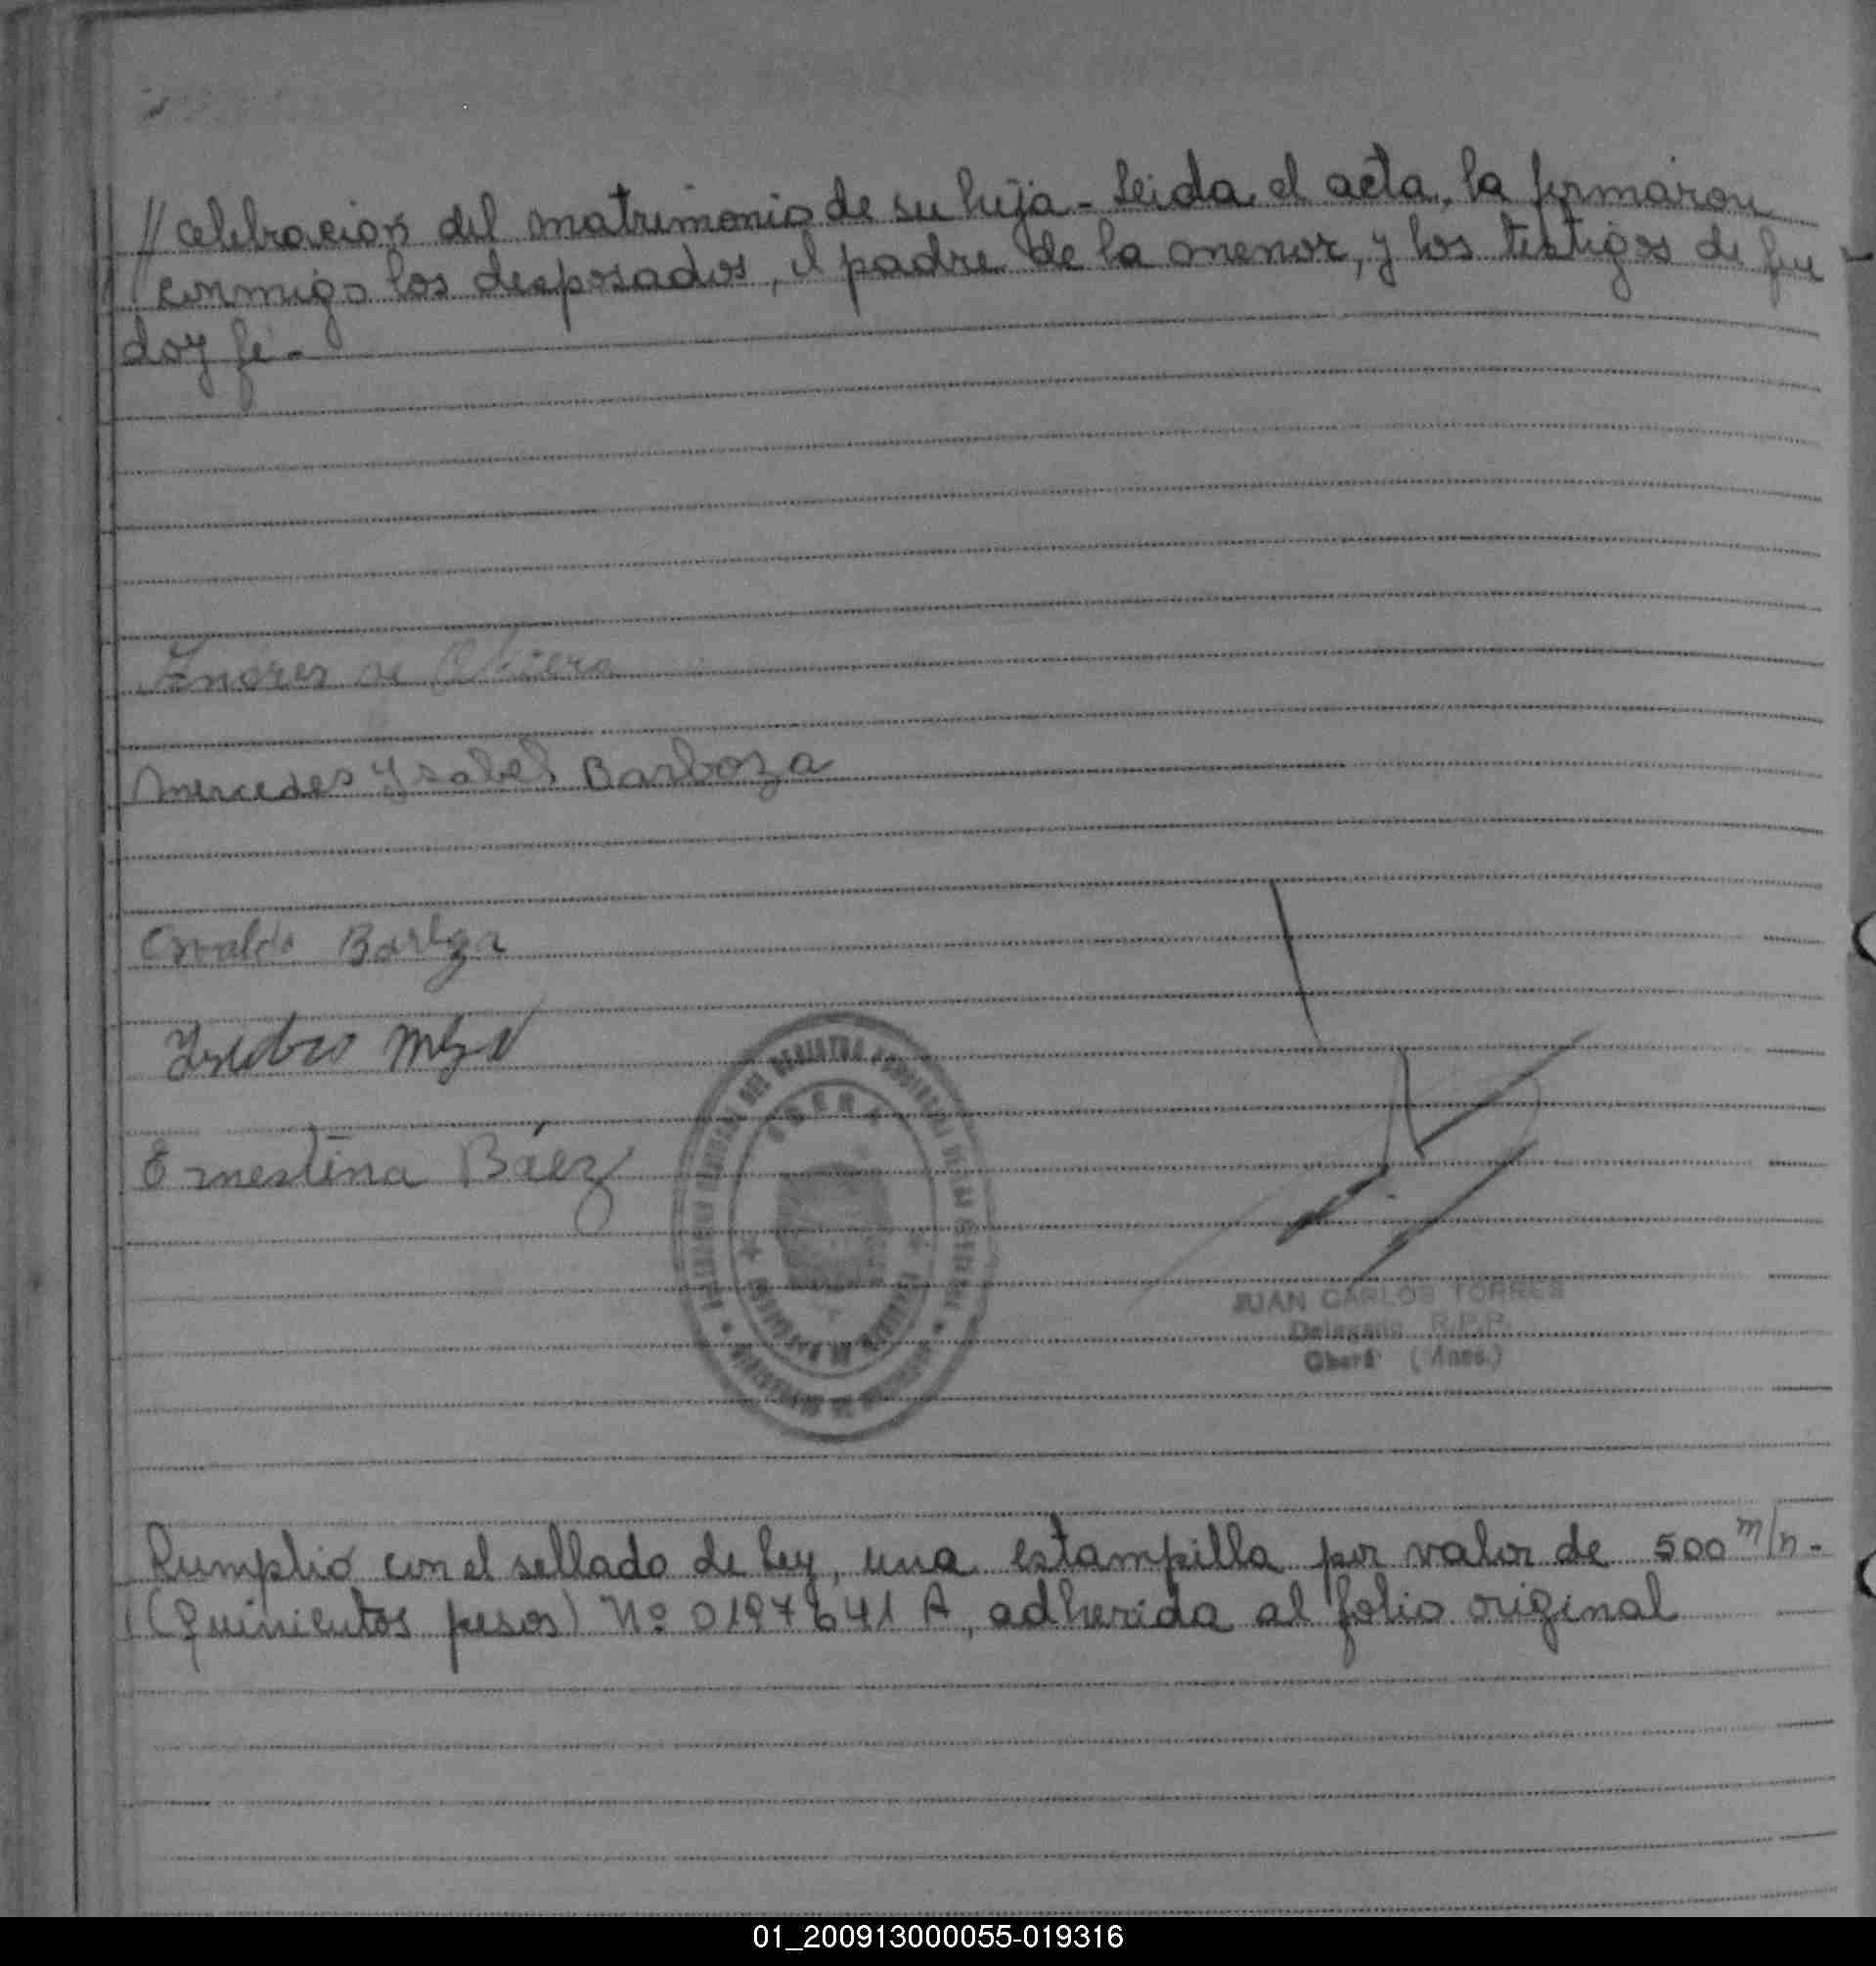 // celebracion del matrimonio de su hija - Leida el acta, la firmaron
conmigo los desposados, el padre de la menor, y los testigos de que
doy fé -
Mercedes Ysabel Barboza
Osvaldo
Ernestina Báez
OBERA
JUAN CARLOS TORRES
Delegado R.P.P.
Oberá (Mnes.)
Cumplió con el sellado de Ley, una estampilla por valor de 500 m/n -
(Quinientos pesos) Nº 0197641 A, adherida al folio original
01_200913000055-019316